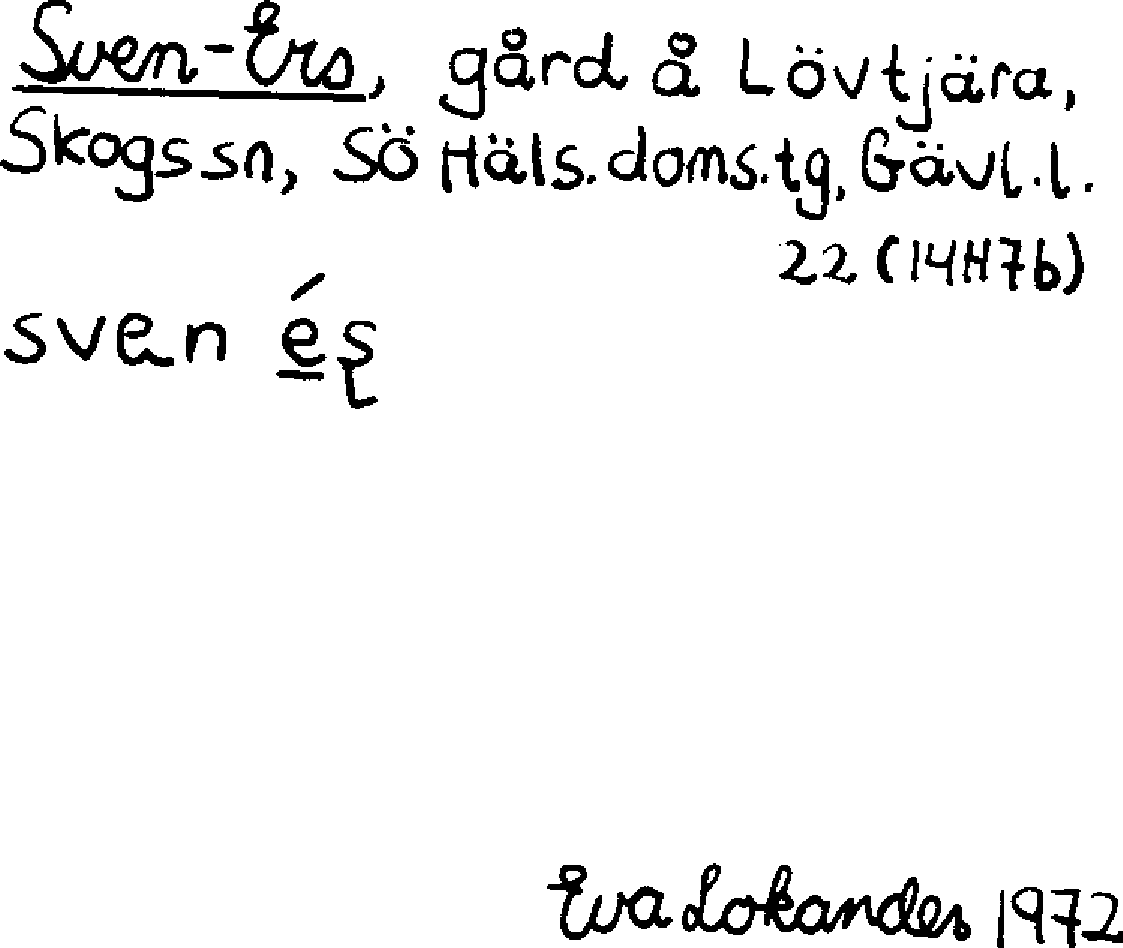 Sven-Ers, gård å Lövtjära,
Skogs sn, Sö Häls. doms. tg, Gävl. l.
22 (14H7b)
sven é̲ş
Eva Lokandes 1972